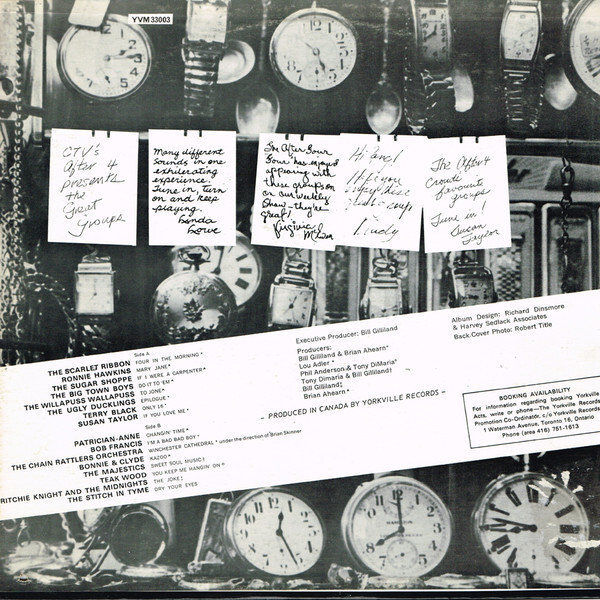 YVM 33003
CTV's
After 4
presents
the
Great
groups
Many different
sounds in one
exhilerating
experience.
Tune in, turn
on and keep
playing.
Londa
Lowe
The After Four
Four has enjoyed
appearing with
these groups on
our weekly
show—they're
great!
Virginia
Hi and
Hope you
enjoy disc
The After 4
crowd's
favourite
groups
Tune in!
Susan
Taylor
Side A
THE SCARLET RIBBON FOUR IN THE MORNING*
RONNIE HAWKINS MARY JANE*
THE SUGAR SHOPPE IF I WERE A CARPENTER*
THE BIG TOWN BOYS DO IT TO 'EM*
THE WILLAPUSS WALLAPUSS TO JONE*
THE UGLY DUCKLINGS EPILOGUE*
TERRY BLACK ONLY 16*
SUSAN TAYLOR IF YOU LOVE ME*
Side B
PATRICIAN-ANNE CHANGIN' TIME*
BOB FRANCIS I'M A BAD BAD BOY*
THE CHAIN RATTLERS ORCHESTRA WINCHESTER CATHEDRAL * under the direction of Brian Skinner
BONNIE & CLYDE KAZOO*
THE MAJESTICS SWEET SOUL MUSIC‡
TEAK WOOD YOU KEEP ME HANGIN' ON
RITCHIE KNIGHT AND THE MIDNIGHTS THE JOKE‡
THE STITCH IN TYME DRY YOUR EYES
Executive Producer: Bill Gilliland
Producers:
Bill Gilliland & Brian Ahearn*
Lou Adler
Phil Anderson & Tony DiMaria
Tony Dimaria & Bill Gilliland†
Bill Gilliland‡
Brian Ahearn
– PRODUCED IN CANADA BY YORKVILLE RECORDS –
Album Design: Richard Dinsmore
& Harvey Sedlack Associates
Back Cover Photo: Robert Title
BOOKING AVAILABILITY
For information regarding booking Yorkville
Acts, write or phone—The Yorkville Records
Promotion Co-Ordinator, c/o Yorkville Records
1 Westerman Avenue, Toronto 16, Ontario
Phone (area 416) 751-1613